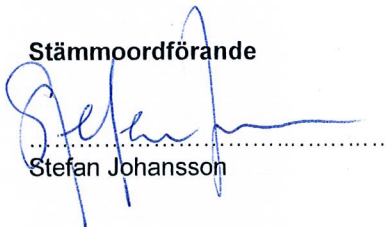 Stämmoordförande
Stefan J
Stefan Johansson